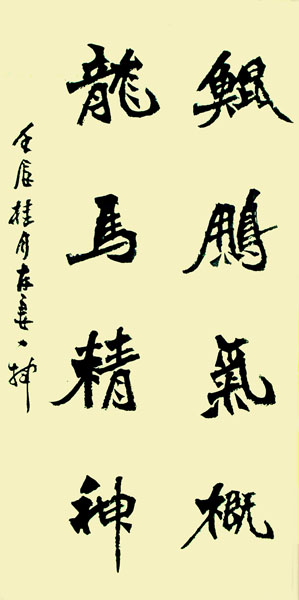 鯤鵬氣概
龍馬精神
壬辰桂月